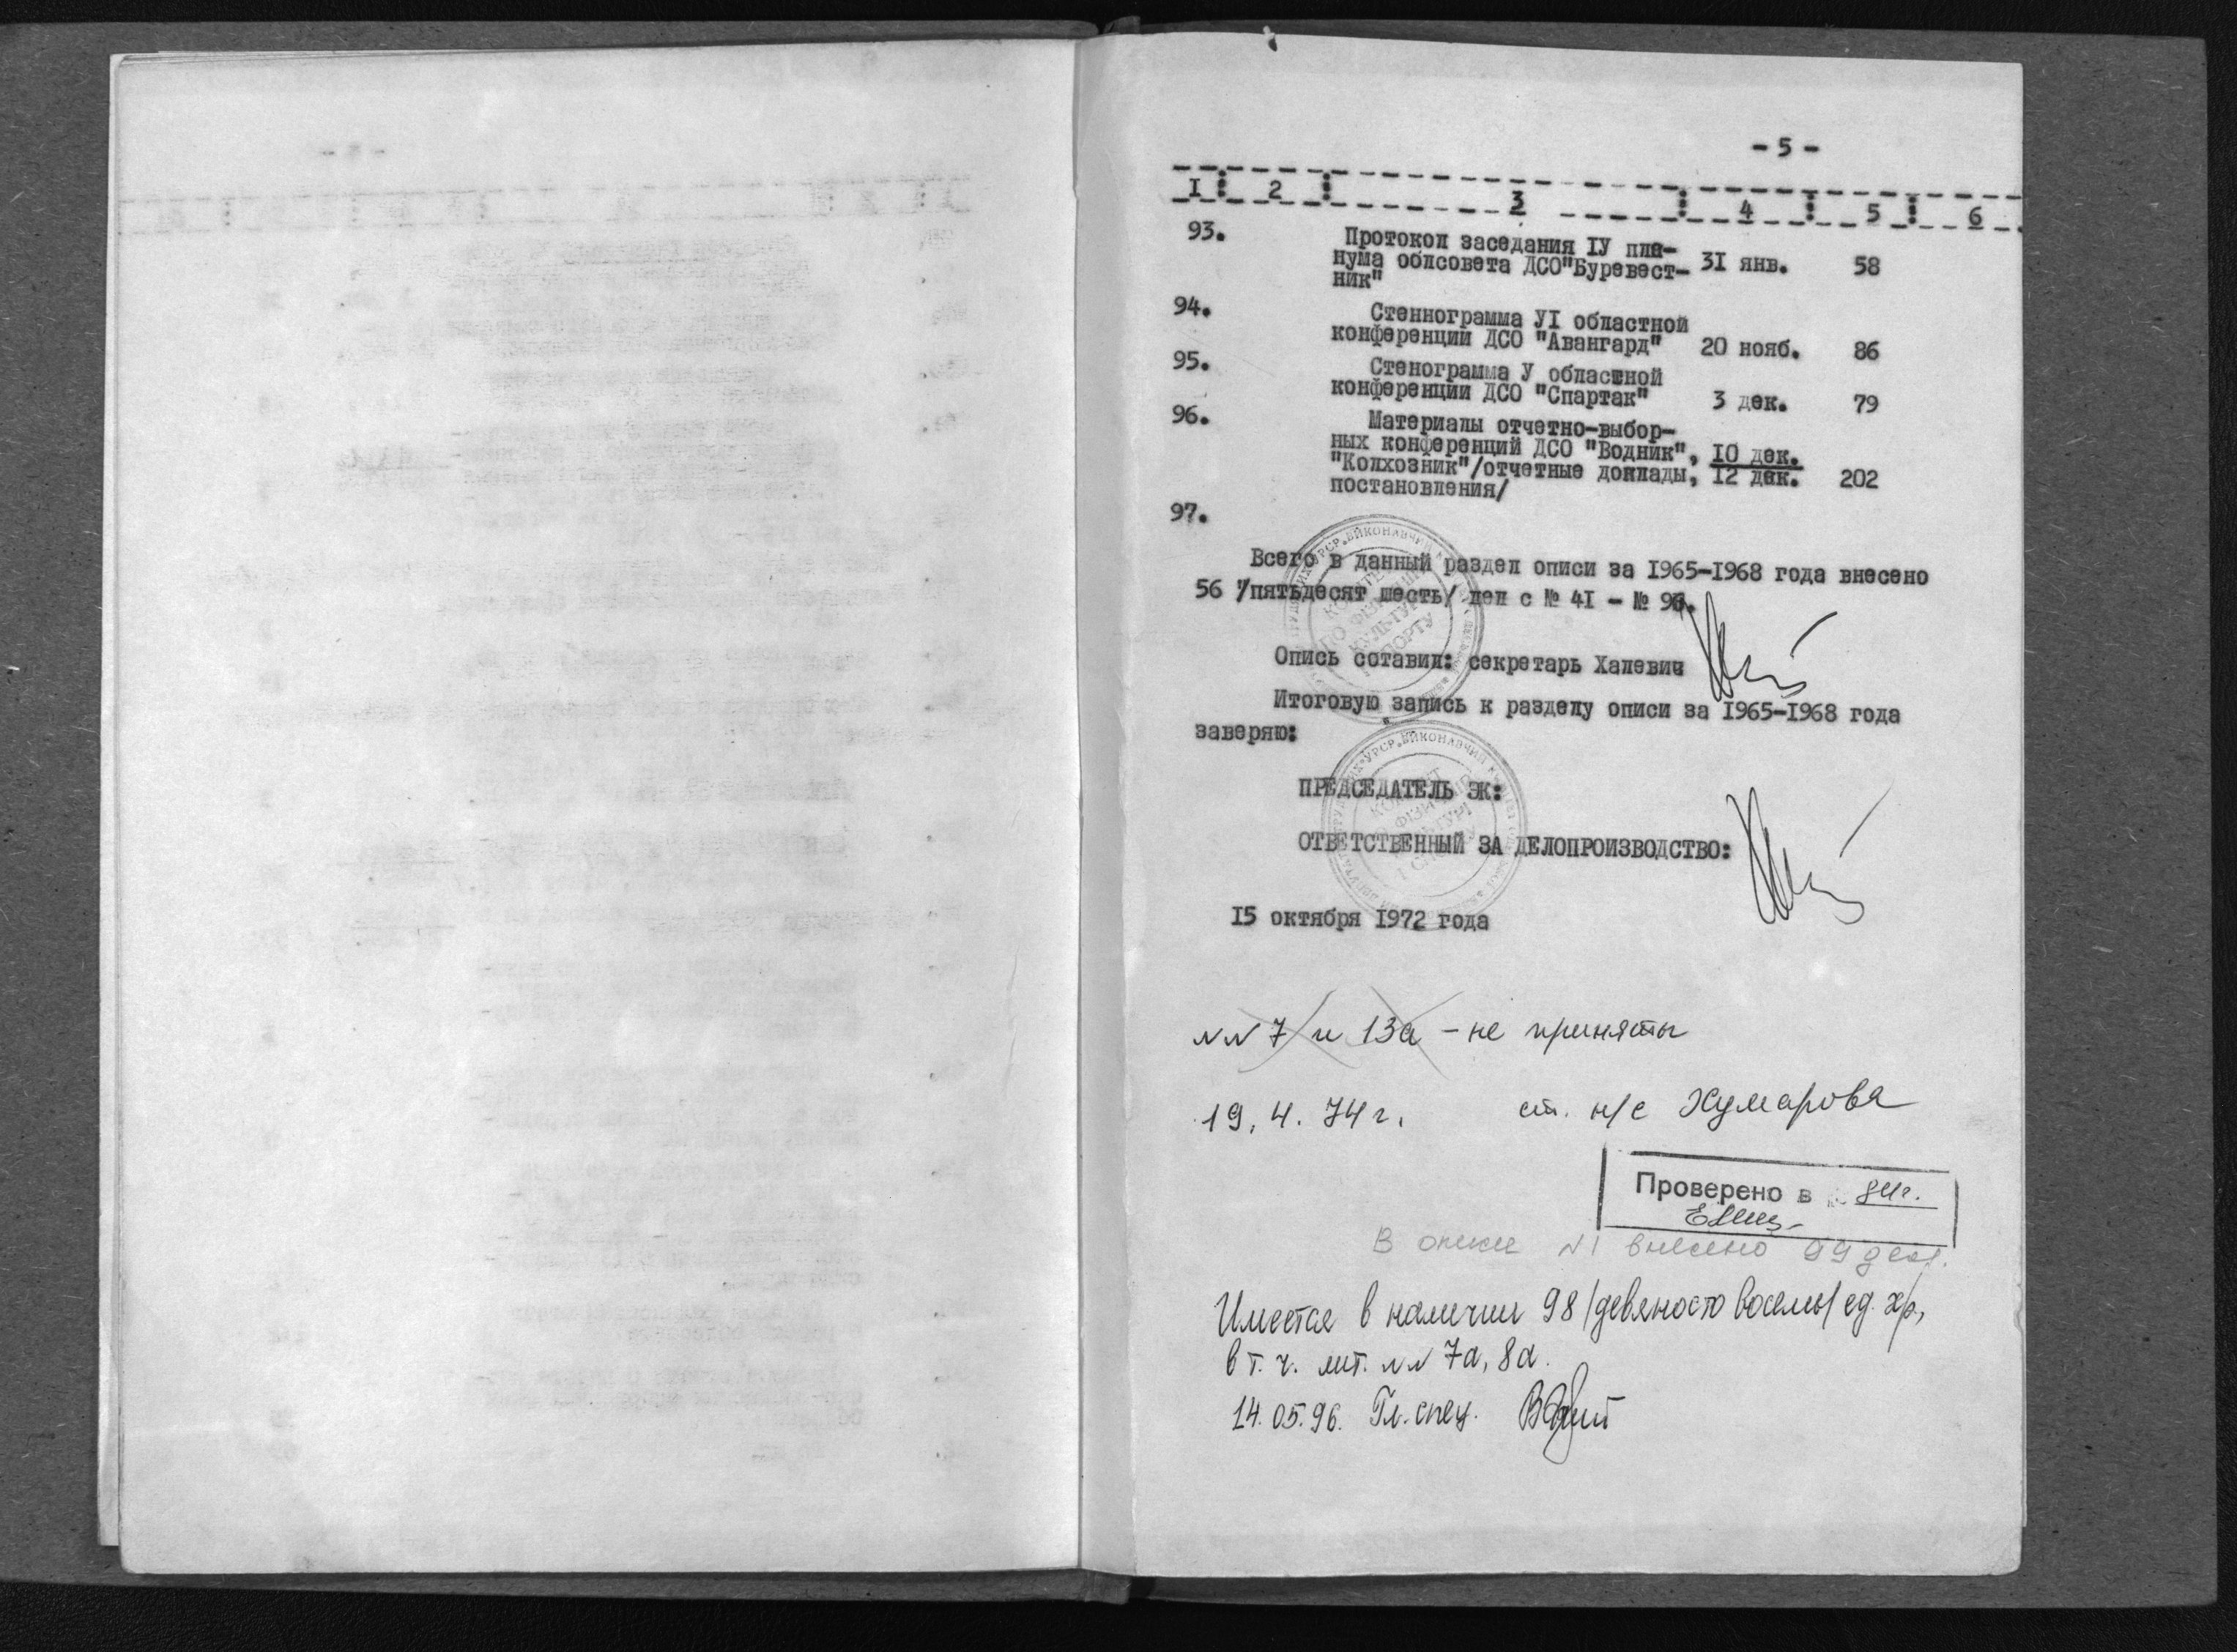 - 5 -
I : 2 : 3 : 4 : 5 : 6
93. Протокол заседания IУ пле-
нума облсовета ДСО"Буревест- 31 янв. 58
ник"
94. Стеннограмма УI областной
конференции ДСО "Авангард" 20 нояб. 86
95. Стенограмма У областной
конференции ДСО "Спартак" 3 дек. 79
96. Материалы отчетно-выбор-
ных конференций ДСО "Водник", 10 дек.
"Колхозник"/отчетные доклады, 12 дек. 202
постановления/
97.
Всего в данный раздел описи за 1965-1968 года внесено
56 /пятьдесят шесть/ дел с № 41 - № 96.
Опись сотавил: секретарь Халевич
Итоговую запись к разделу описи за 1965-1968 года
заверяю:
ПРЕДСЕДАТЕЛЬ ЭК:
ОТВЕТСТВЕННЫЙ ЗА ДЕЛОПРОИЗВОДСТВО:
15 октября 1972 года
УРСР ВИКОНАВЧИЙ
КУЛЬТУРІ
І СПОРТУ
№№ 7 и 13а - не приняты
19. 4. 74 г. ст. н/с Хумарова
Проверено в 84г.
В описи №1 внесено 99 дел.
Имеется в наличии 98 /девяносто восемь/ ед. хр,
в т. ч. лит. №№ 7а, 8а.
14.05.96. Гл. спец.